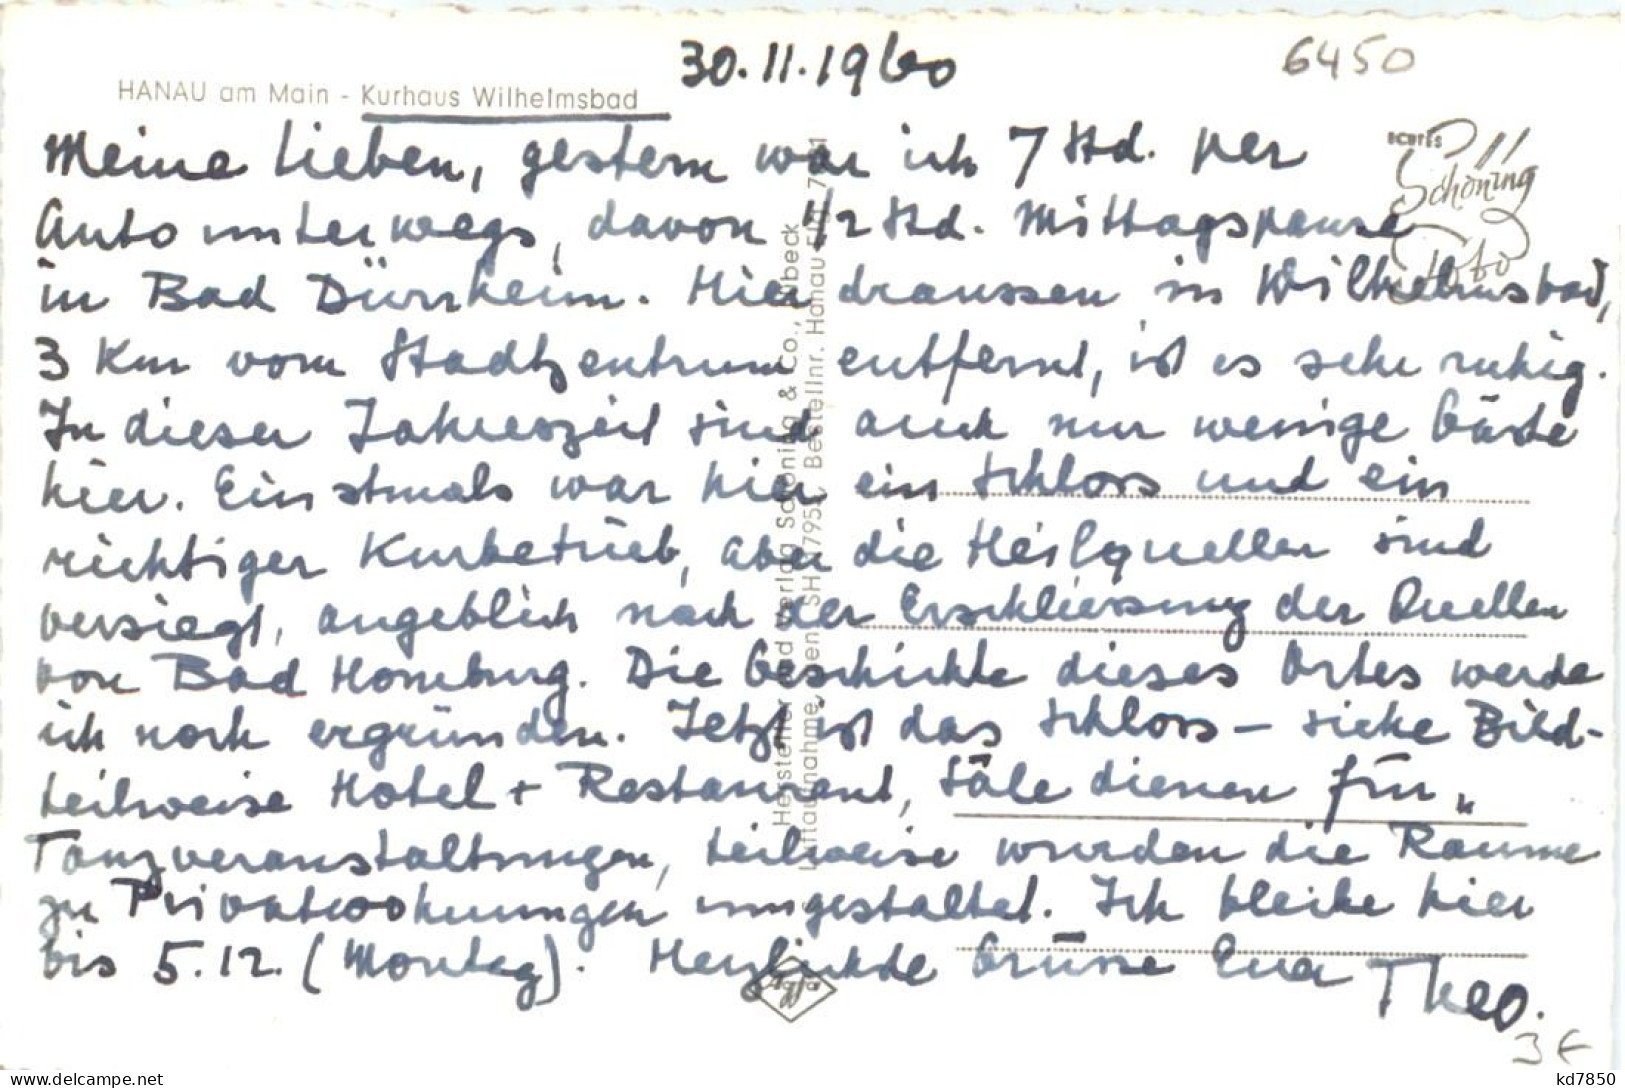 30.11.1960
6450
HANAU am Main - Kurhaus Wilhelmsbad
ECHTES
Schöning
Foto
Meine Lieben, gestern war ich 7 Std. per
Auto unterwegs, davon 1/2 Std. Mittagspause
in Bad Dürrheim. Hier draussen in Wilhelmsbad,
3 Km vom Stadtzentrum entfernt, ist es sehr ruhig.
In dieser Jahreszeit sind auch nur wenige Gäste
hier. Einstmals war hier ein Schloss und ein
richtiger Kurbetrieb, aber die Heilquellen sind
versiegt, angeblich nach der Erschliessung der Quellen
von Bad Homburg. Die Geschichte dieses Ortes werde
ich noch ergründen. Jetzt ist das Schloss – siehe Bild-
teilweise Hotel + Restaurant, Säle dienen für „
Tanzveranstaltungen, teilweise wurden die Räume
zu Privatwohnungen umgestaltet. Ich bleibe hier
bis 5.12. (Montag). Herzlichste Grüsse Euer Theo.
Hersteller und Verlag Schöning & Co., Lübeck
Luftaufnahme SH 795 Bestellnr. Hanau
Agfa
3 €
kd7850